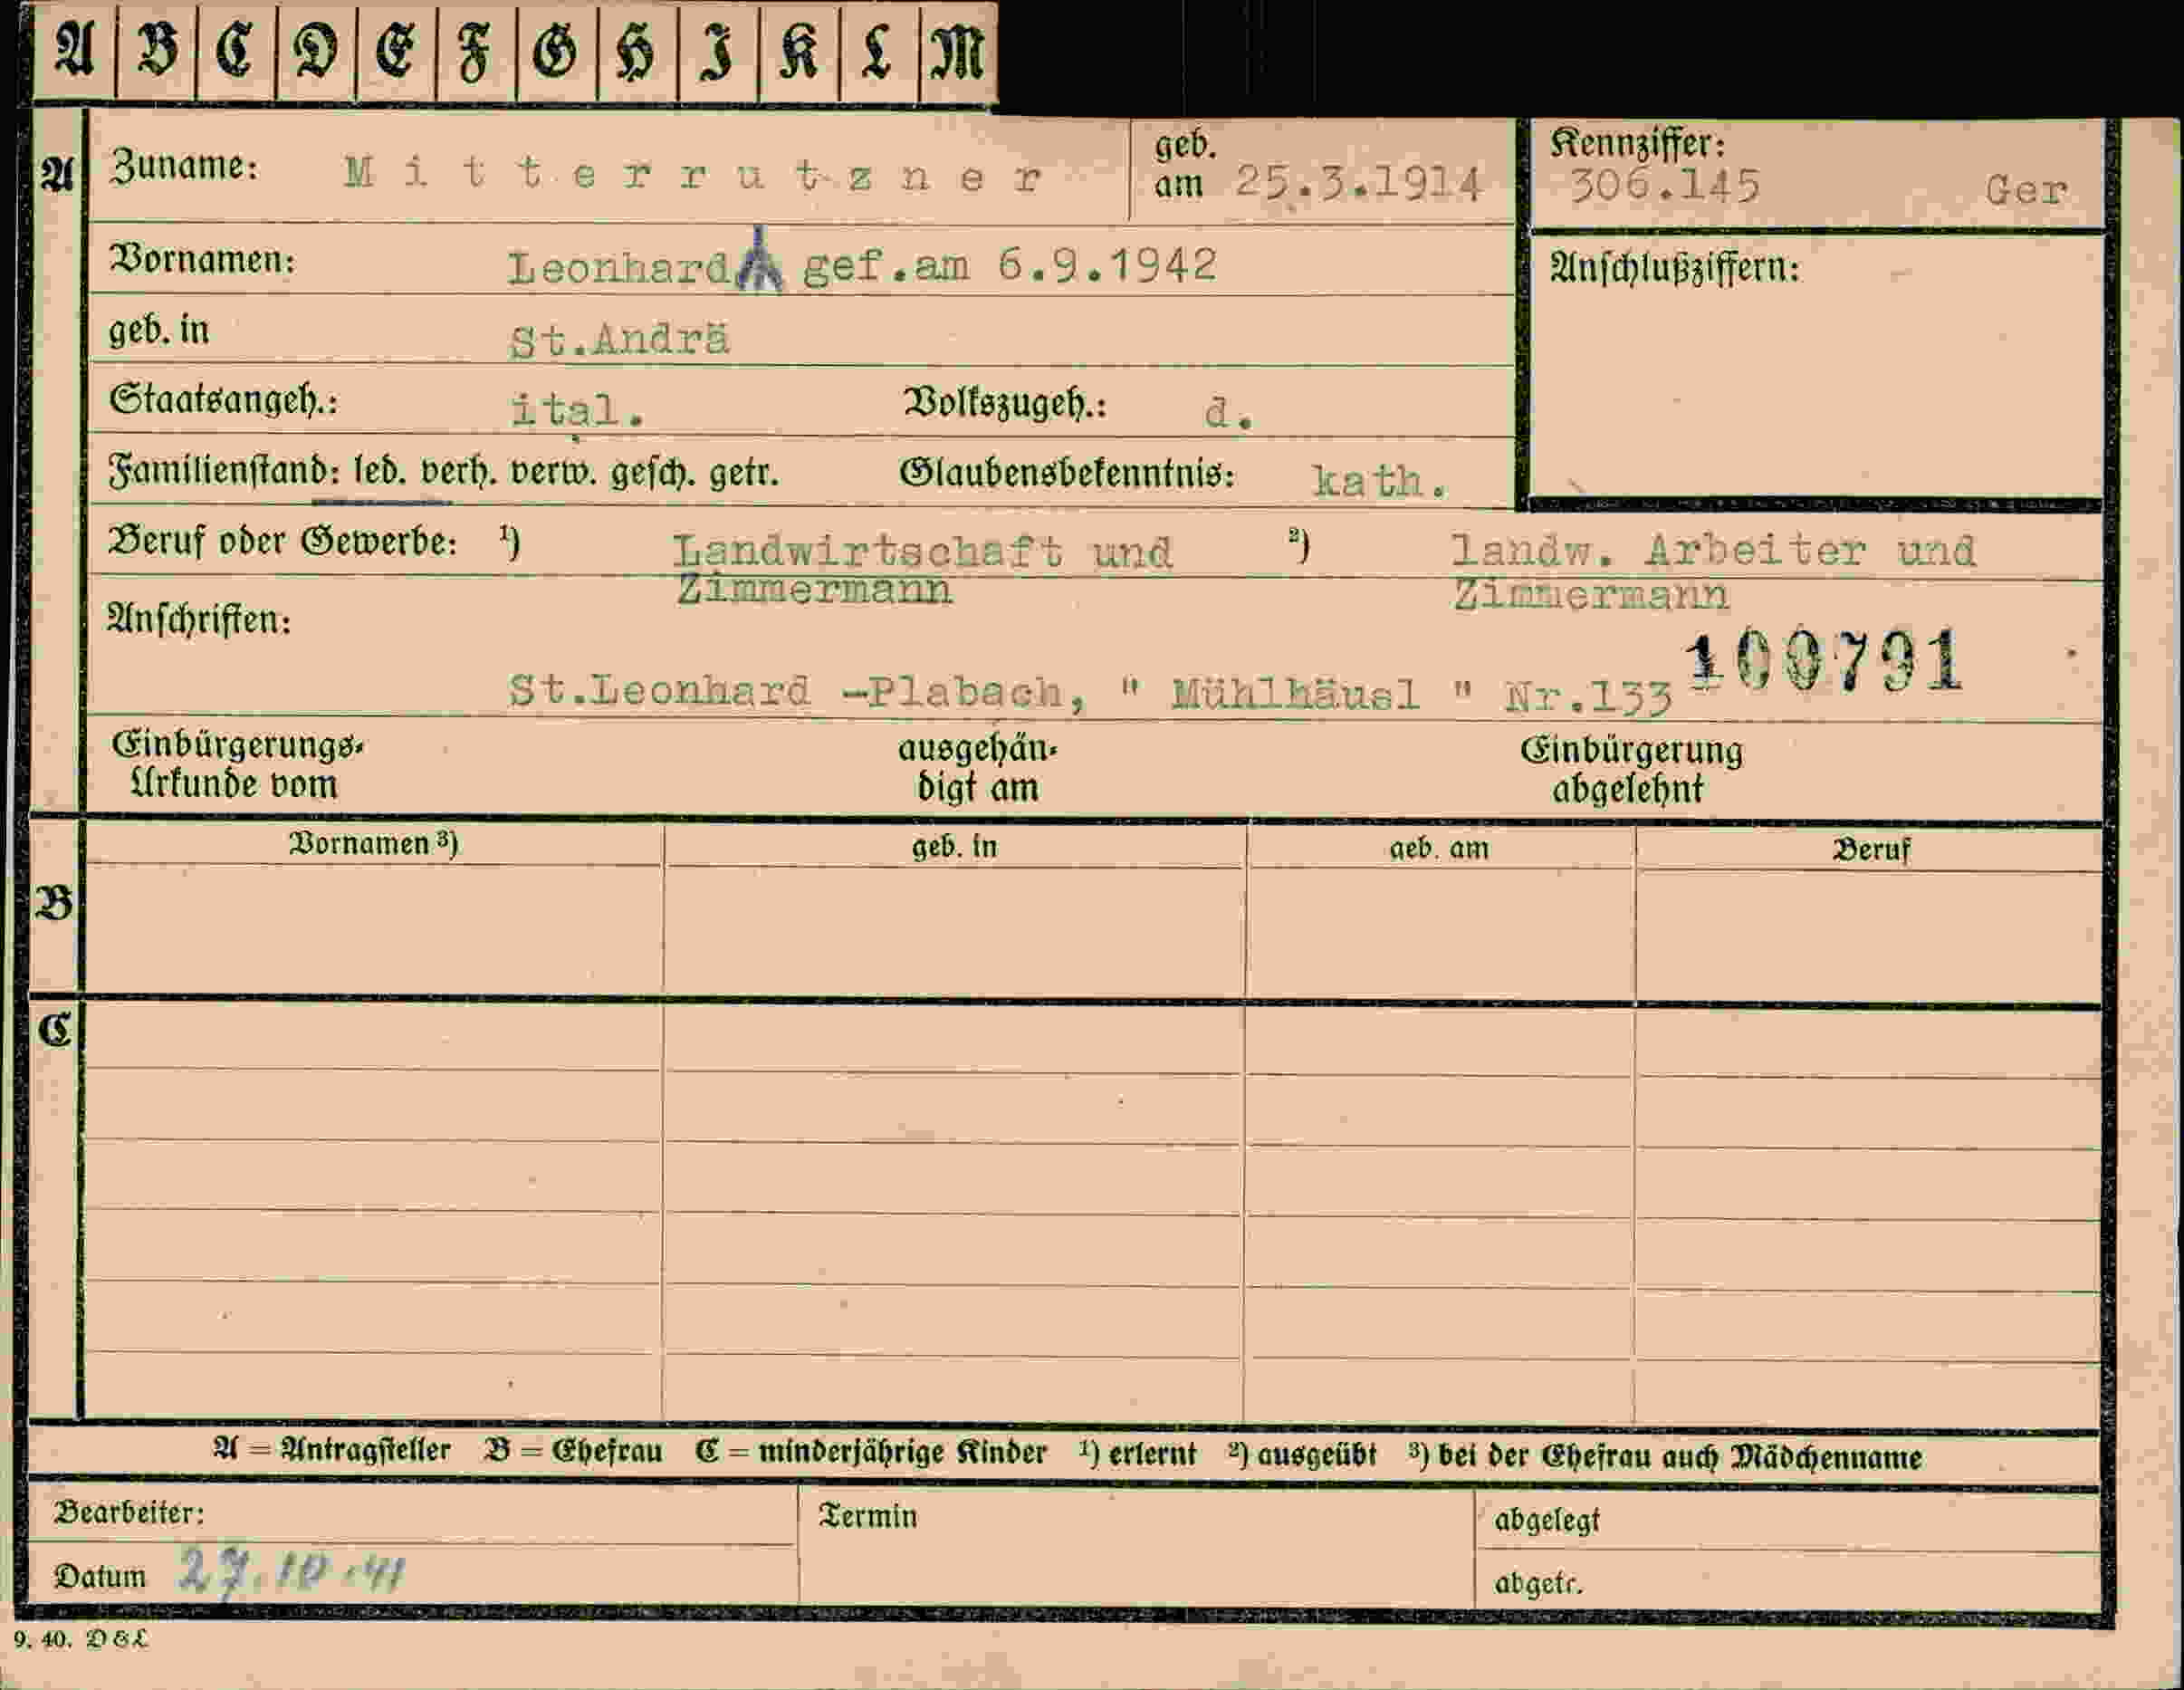 A B C D E F G H I K L M
A Zuname: Mitterrutzner geb. am 25.3.1914 Kennziffer: 306.145 Ger
Vornamen: Leonhard gef.am 6.9.1942 Anschlußziffern:
geb. in St.Andrä
Staatsangeh.: ital. Volkszugeh.: d.
Familienstand: led. verh. verw. gesch. getr. Glaubensbekenntnis: kath.
Beruf oder Gewerbe: ¹) Landwirtschaft und ²) landw. Arbeiter und
Zimmermann Zimmermann
Anschriften:
100791
St.Leonhard -Plabach, " Mühlhäusl " Nr.133
Einbürgerungs- ausgehän- Einbürgerung
Urkunde vom digt am abgelehnt
Vornamen ³) geb. in geb. am Beruf
B
C
A = Antragsteller B = Ehefrau C = minderjährige Kinder ¹) erlernt ²) ausgeübt ³) bei der Ehefrau auch Mädchenname
Bearbeiter: Termin abgelegt
Datum 27.10.41 abgetr.
9. 40. D & L